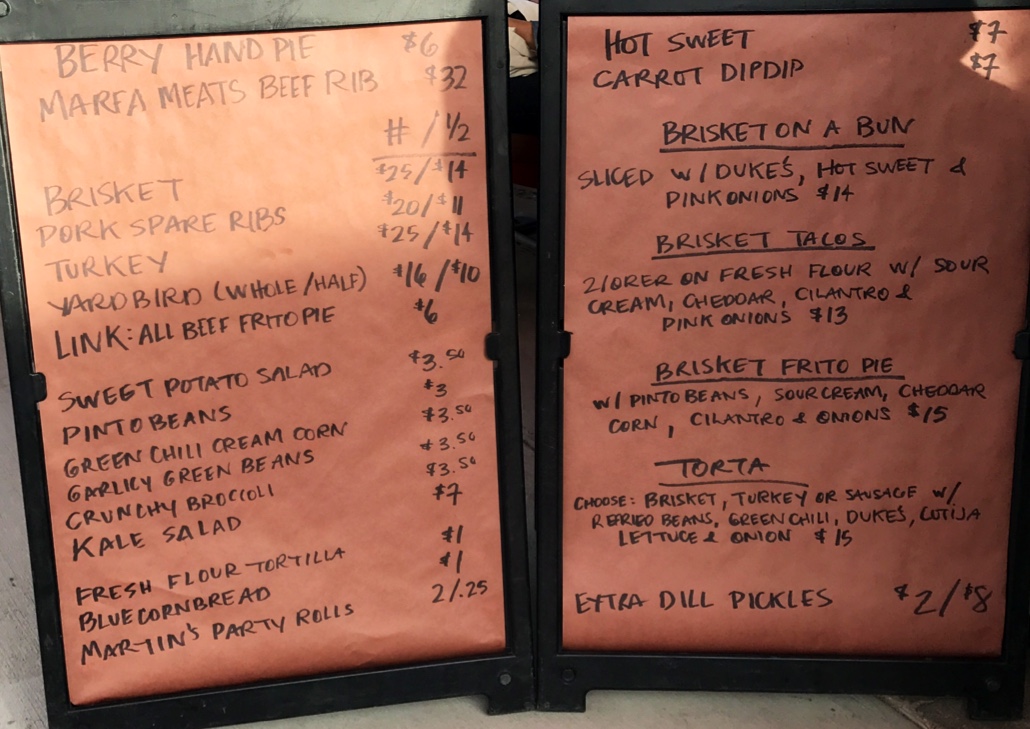 BERRY HAND PIE $6
MARFA MEATS BEEF RIB $32
# / 1/2
BRISKET $25/$14
PORK SPARE RIBS $20/$11
TURKEY $25/$14
YARDBIRD (WHOLE/HALF) $16/$10
LINK: ALL BEEF FRITO PIE $6
SWEET POTATO SALAD $3.50
PINTO BEANS $3
GREEN CHILI CREAM CORN $3.50
GARLICY GREEN BEANS $3.50
CRUNCHY BROCCOLI $3.50
KALE SALAD $7
FRESH FLOUR TORTILLA $1
BLUE CORNBREAD $1
MARTIN'S PARTY ROLLS 2/.25
HOT SWEET $7
CARROT DIPDIP $7
BRISKET ON A BUN
SLICED W/ DUKE'S, HOT SWEET &
PINK ONIONS $14
BRISKET TACOS
2/ORER ON FRESH FLOUR W/ SOUR
CREAM, CHEDDAR, CILANTRO &
PINK ONIONS $13
BRISKET FRITO PIE
W/ PINTO BEANS, SOUR CREAM, CHEDDAR
CORN, CILANTRO & ONIONS $15
TORTA
CHOOSE: BRISKET, TURKEY OR SAUSAGE W/
REFRIED BEANS, GREEN CHILI, DUKE'S, COTIJA
LETTUCE & ONION $15
EXTRA DILL PICKLES $2/$8